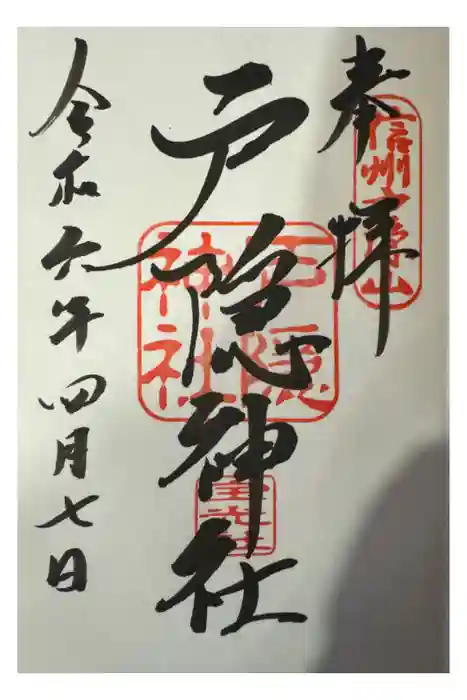 奉拝
信州戸隠山
戸隠神社
戸隠
神社
宝光社
令和六年四月七日